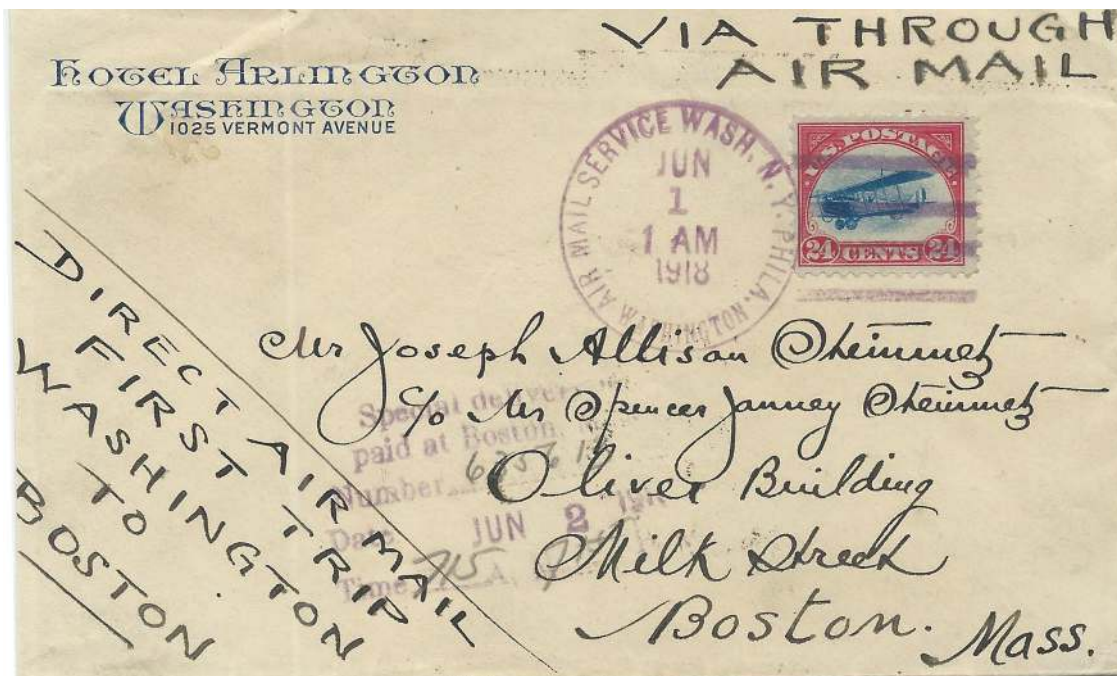 VIA THROUGH
AIR MAIL
HOTEL ARLINGTON
WASHINGTON
1025 VERMONT AVENUE
AIR MAIL SERVICE WASH. N.Y. PHILA.
JUN
1
1 AM
1918
WASHINGTON
U.S. POSTAGE
24 CENTS 24
DIRECT AIR MAIL
FIRST TRIP
WASHINGTON
TO
BOSTON
Mr Joseph Allison Steinmetz
c/o Mr Spencer Janney Steinmetz
Oliver Building
Milk Street
Boston. Mass.
Special delivery
paid at Boston,
Number
Date JUN 2
Time 715 A,